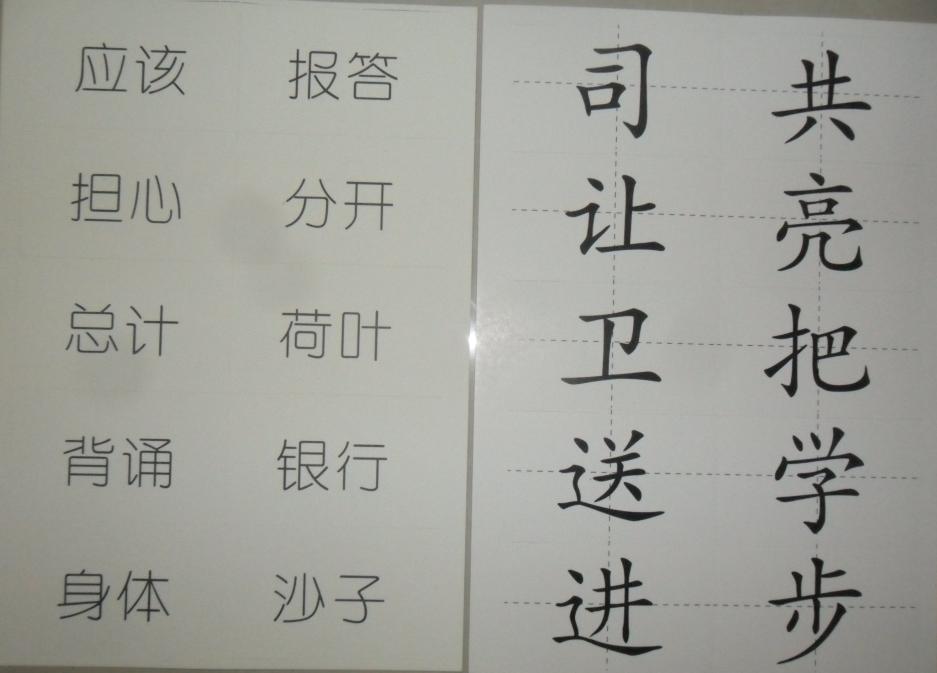 应该 报答
担心 分开
总计 荷叶
背诵 银行
身体 沙子
司 共
让 亮
卫 把
送 学
进 步